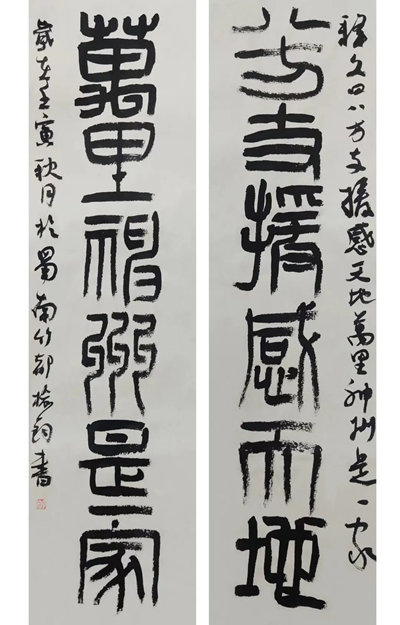 释文曰八方支援感天地萬里神州是一家
八方支援感天地
萬里神州是一家
歲在壬寅秋月於蜀南竹都書